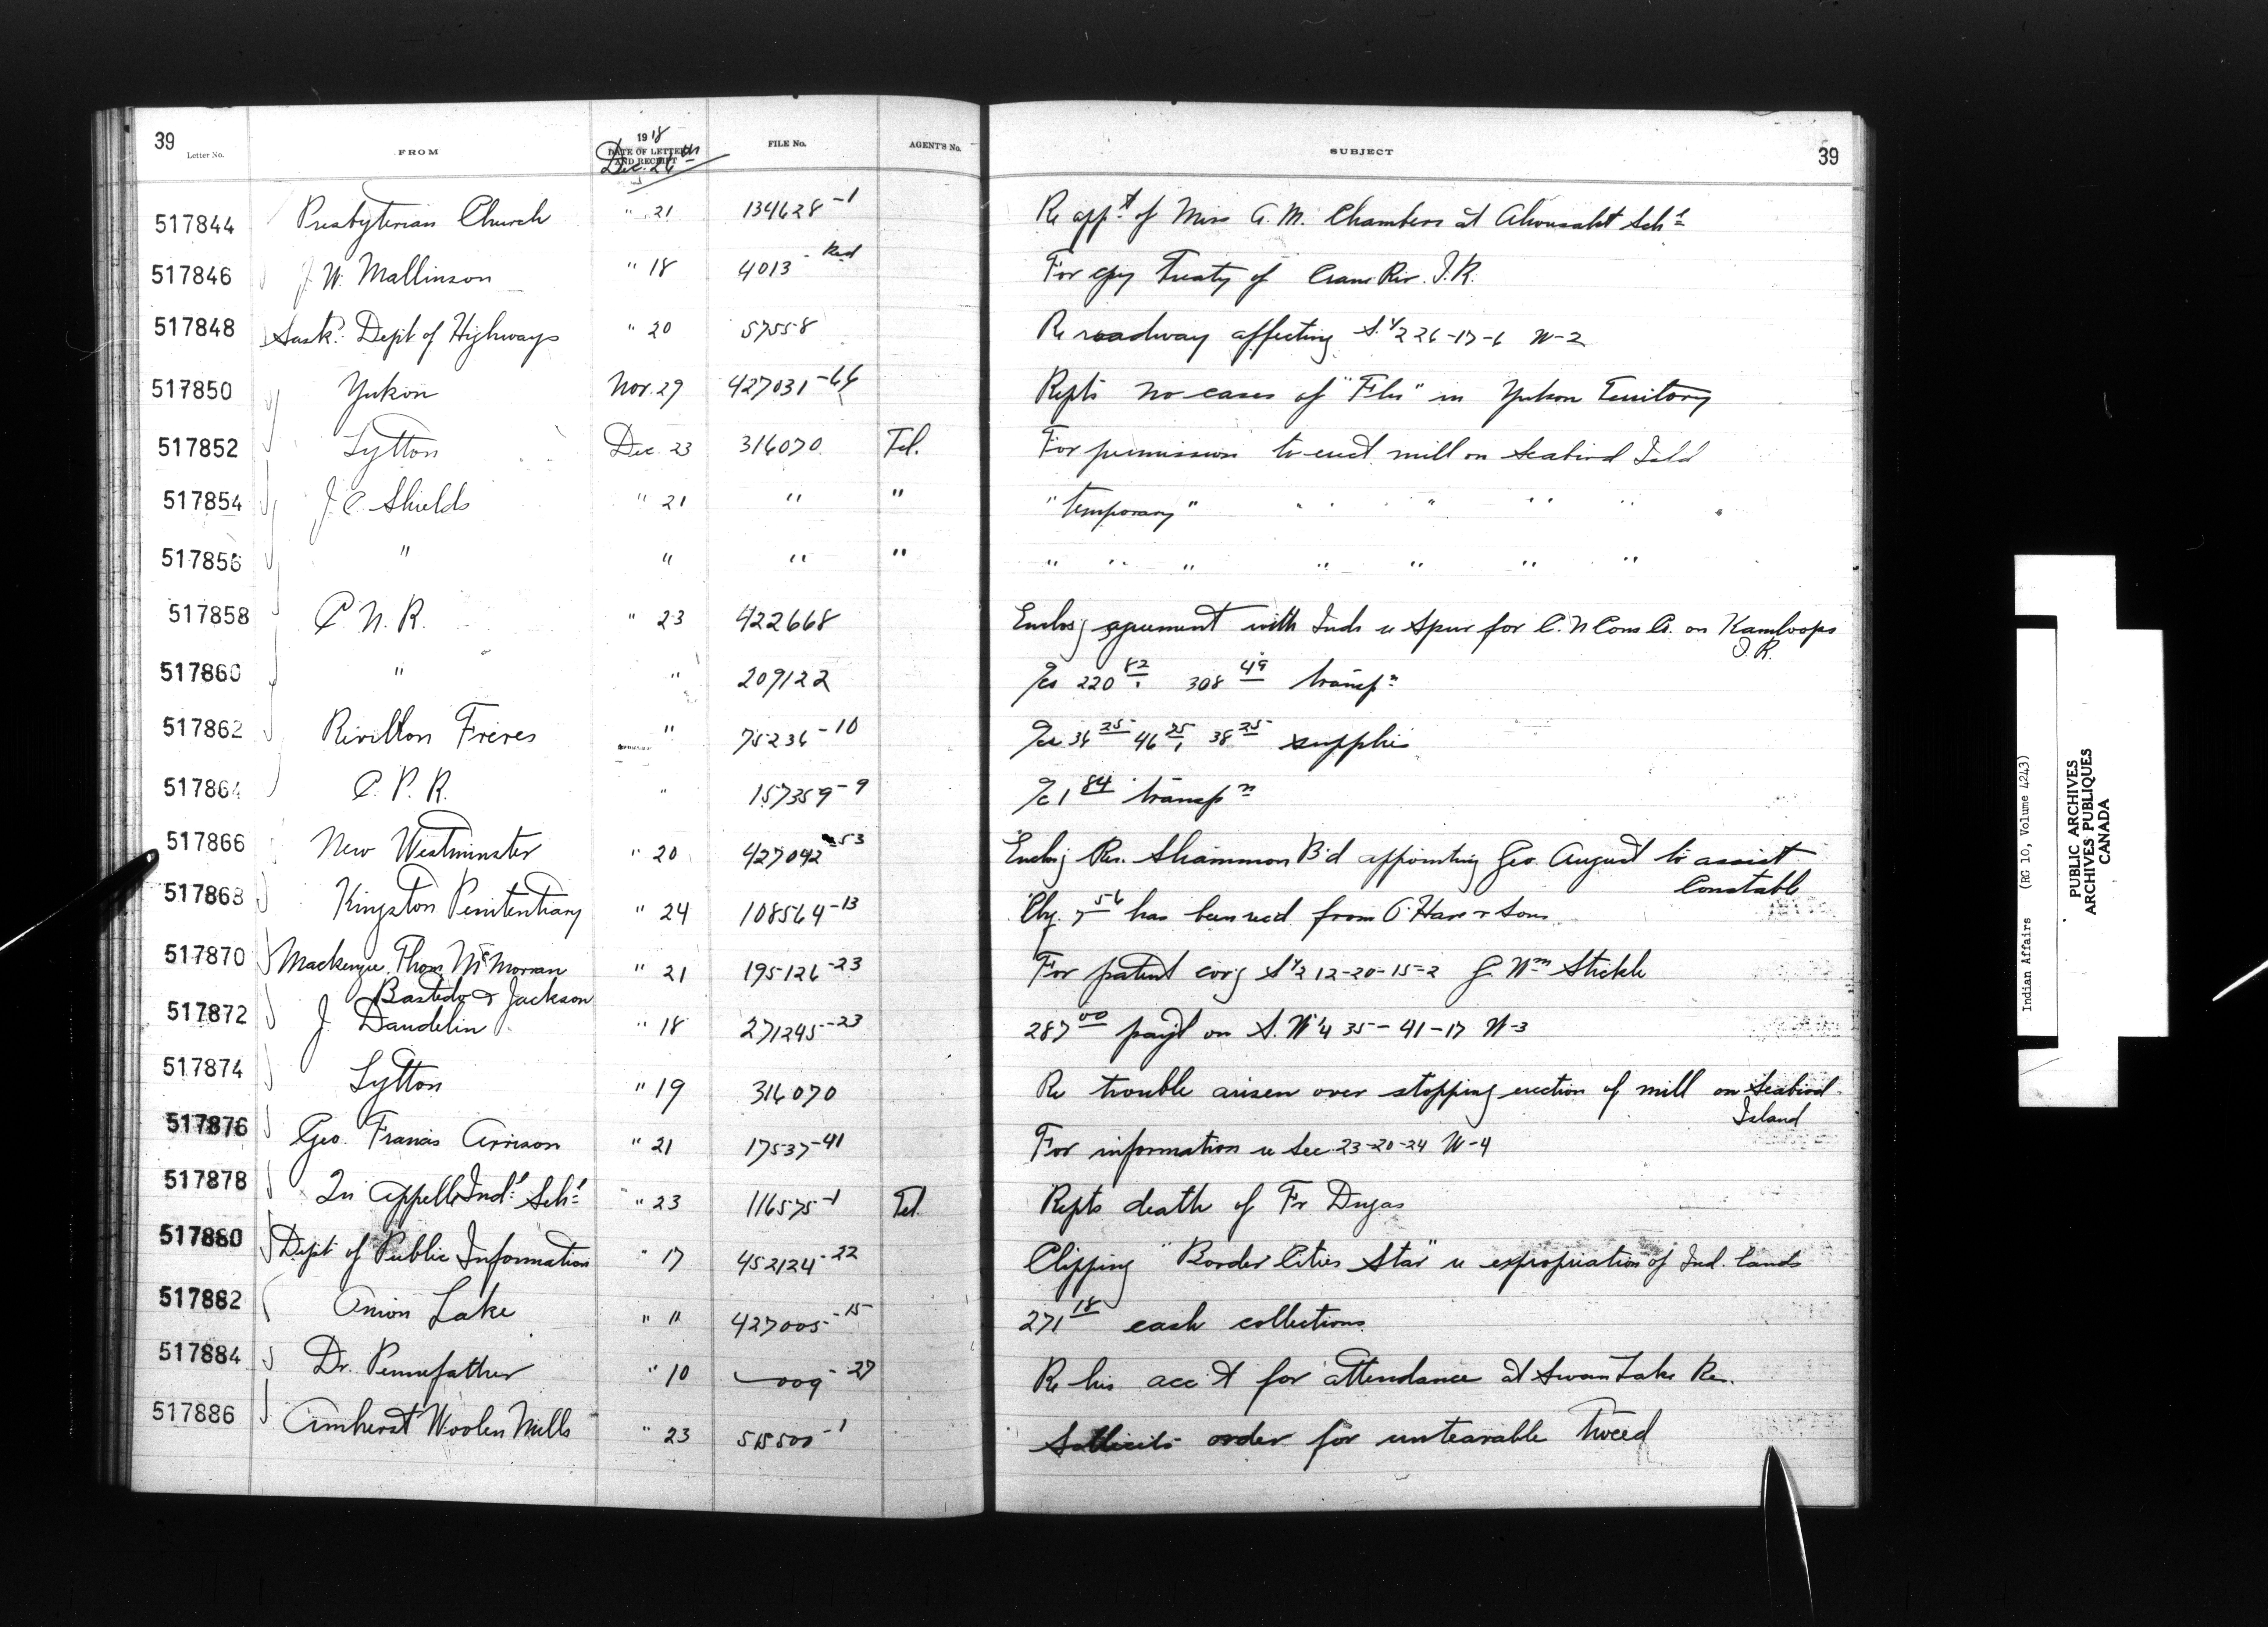 39 Letter No. FROM 1918 DATE OF LETTER AND RECEIPT Dec. 26th FILE No. AGENT'S No. SUBJECT 39
517844 Presbyterian Church " 21 134628-1 Re app't of Miss A. M. Chambers at Ahousaht Sch'l
517846 J. W. Mallinson " 18 4013-Red For copy Treaty of Crane Riv. I.R.
517848 Sask. Dept of Highways " 20 57558 Re roadway affecting S.1/2 26-17-6 W-2
517850 Yukon Nov. 29 427031-66 Repts no cases of "Flu" in Yukon Territory
517852 Lytton Dec. 23 316070 Tel. For permission to erect mill on Seabird Isld
517854 J. C. Shields " 21 " " "temporary" " " " " "
517856 " " " " " " " " " " "
517858 C. N. R. " 23 422668 Enclosg agreement with Inds re Spur for C. N Cons Co. on Kamloops
I.R.
517860 " " 209122 a/cs 220 82, 308 49 transp'n
517862 Rivillon Freres " 75236-10 a/cs 36 25 46 25, 38 25 supplies
517864 C. P. R. " 157359-9 a/c 1 84 transp'n
517866 New Westminster " 20 427042-53 Enclosg Res. Shammon B'd appointing Geo. August to assist
Constable
517868 Kingston Penitentiary " 24 108564-13 Chq. 7 56 has been recd from O'Hare & Sons
517870 Mackenzie, Thom, McMorran " 21 195126-23 For patent covg S1/2 12-20-15-2 G. Wm Stickle
Bastedo & Jackson
517872 J. Dandelin " 18 271245-23 287 00 pay't on S. W 1/4 35-41-17 W-3
517874 Lytton " 19 316070 Re trouble arisen over stopping erection of mill on Seabird
Island
517876 Geo. Francis Arrison " 21 17537-41 For information re Sec. 23-20-24 W-4
517878 Qu Appelle Ind'l Sch'l " 23 116575-1 Tel. Repts death of Fr. Dugas
517880 Dept of Public Information " 17 452124-22 Clipping "Border Cities Star" re expropriation of Ind. lands
517882 Onion Lake " " 427005-15 271 18 cash collections.
517884 Dr. Pennefather " 10 009-27 Re his acc't for attendance at Swan Lake Res.
517886 Amherst Woolen Mills " 23 515500-1 Sollicits order for untearable Tweed
Indian Affairs (RG 10, Volume 4243)
PUBLIC ARCHIVES
ARCHIVES PUBLIQUES
CANADA